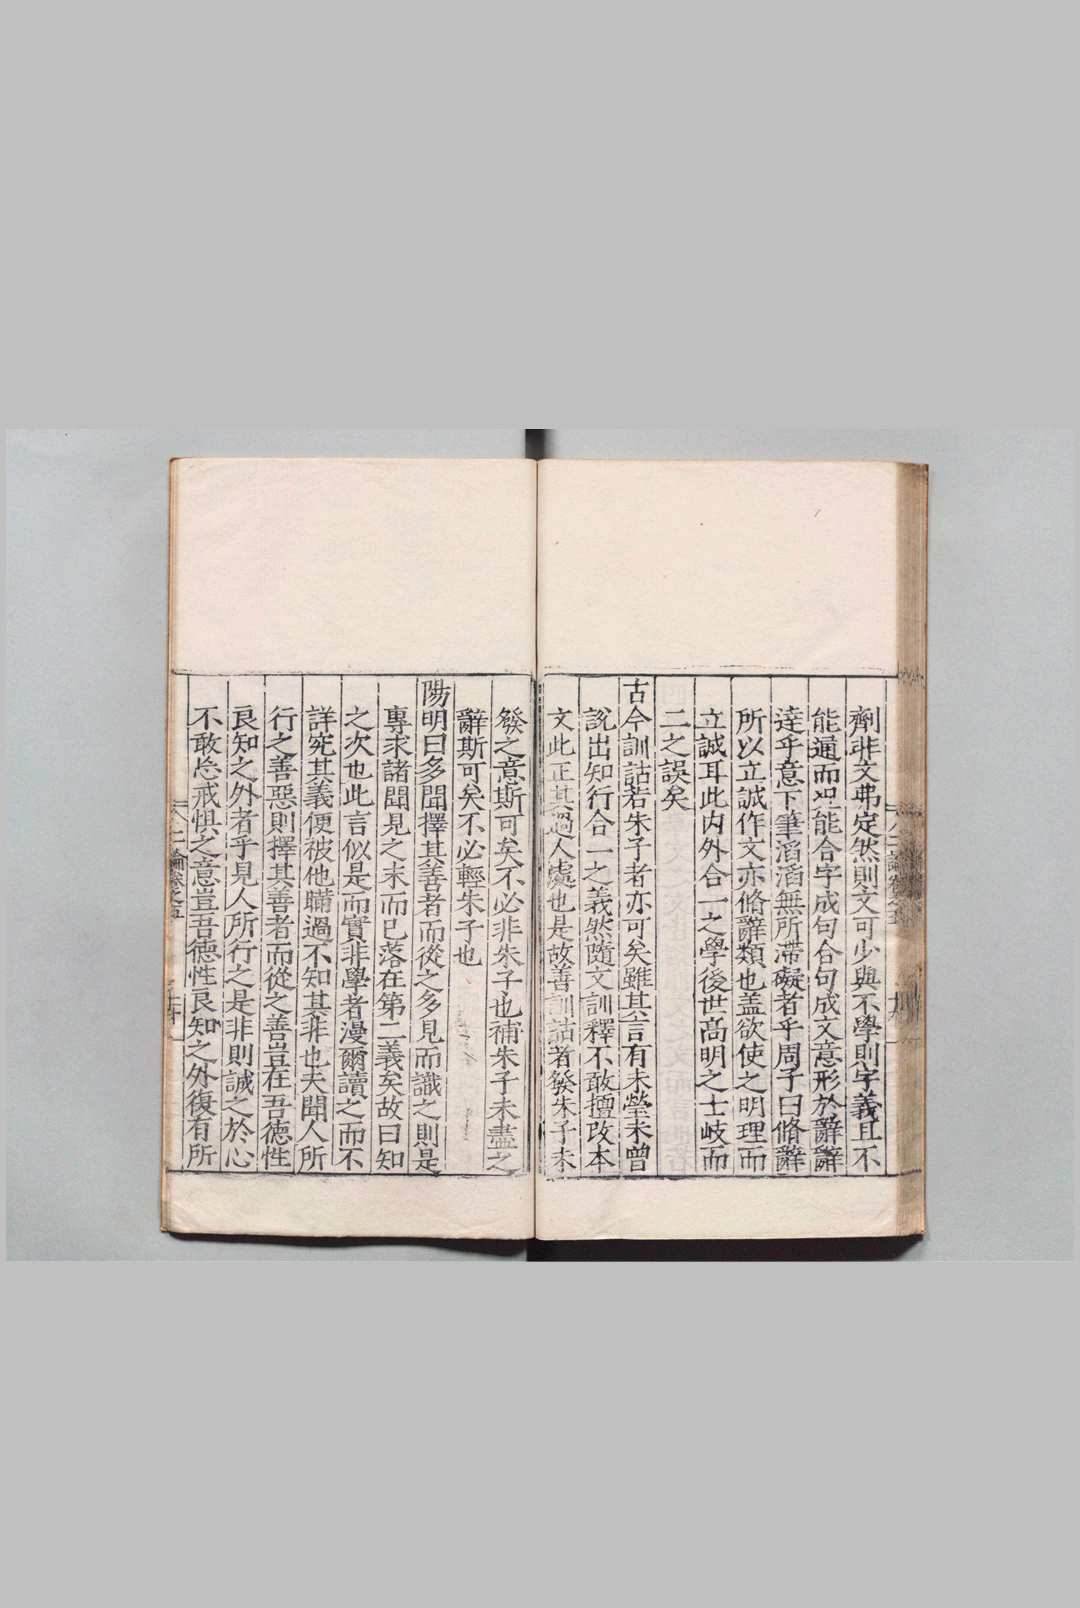 劑非文弗定然則文可少與不學則字義且不
能通而況能合字成句合句成文意形於辭辭
達乎意下筆滔滔無所滯礙者乎周子曰脩辭
所以立誠作文亦脩辭類也盖欲使之明理而
立誠耳此内外合一之學後世高明之士岐而
二之誤矣
古今訓詁若朱子者亦可矣雖其言有未瑩未曾
說出知行合一之義然隨文訓釋不敢擅改本
文此正其過人處也是故善訓詁者發朱子未
發之意斯可矣不必非朱子也補朱子未盡之
辭斯可矣不必輕朱子也
陽明曰多聞擇其善者而從之多見而識之則是
專求諸聞見之末而已落在第二義矣故曰知
之次也此言似是而實非學者漫爾讀之而不
詳究其義便被他瞞過不知其非也夫聞人所
行之善惡則擇其善者而從之善豈在吾德性
良知之外者乎見人所行之是非則誠之於心
不敢忘戒惧之意豈吾德性良知之外復有所
論卷之五